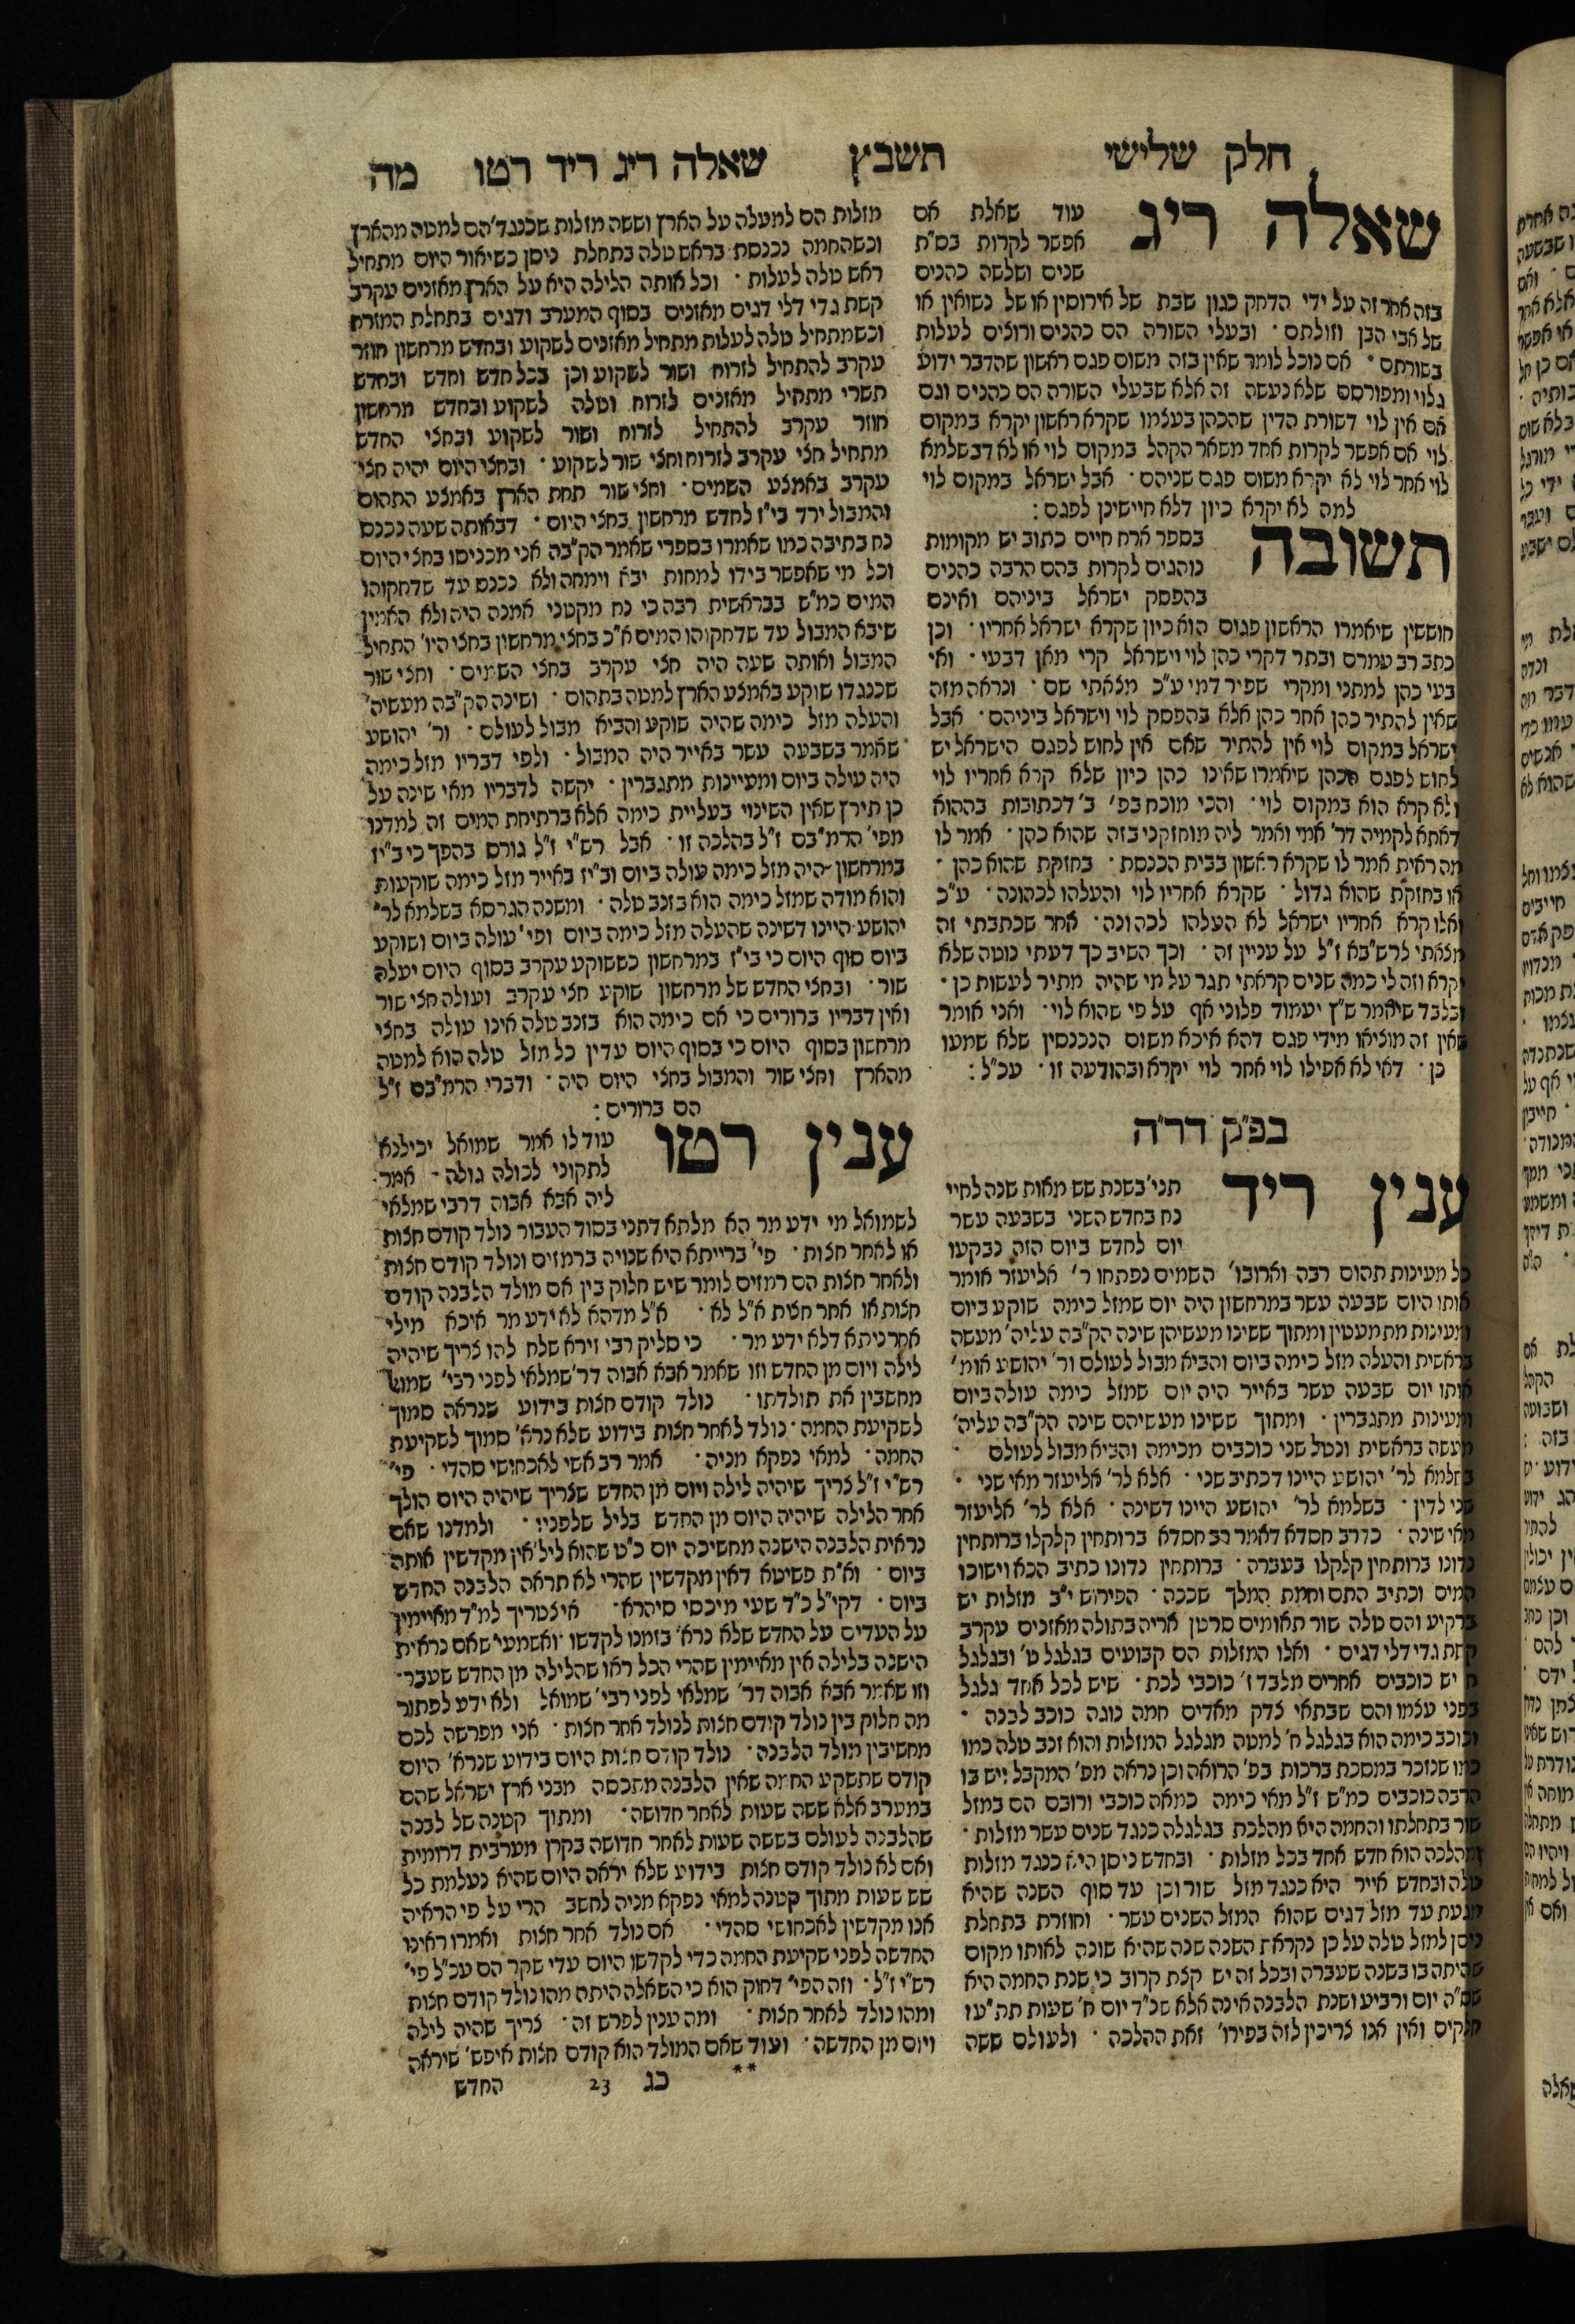 חלק שלישי תשבץ שאלה ריג ריד רטו מה
שאלה ריג עוד שאלת אם
אפשר לקרות בס"ת
שנים ושלשה כהנים
בזה אחר זה על ידי הדחק כגון שבת של אירוסין או של נשואין או
של אבי הבן וזולתם · ובעלי השורה הם כהנים ורוצים לעלות
בשורתם · אם נוכל לומר שאין בזה משום פגם ראשון שהדבר ידוע
גלוי ומפורסם שלא נעשה זה אלא שבעלי השורה הם כהנים וגם
אם אין לוי דשורת הדין שהכהן בעצמו שקרא ראשון יקרא במקום
לוי אם אפשר לקרות אחד משאר הקהל במקום לוי או לא דבשלמא
לוי אחר לוי לא יקרא משום פגם שניהם · אבל ישראל במקום לוי
למה לא יקרא כיון דלא חיישינן לפגם :
תשובה בספר ארח חיים כתוב יש מקומות
נוהגים לקרות בהם הרבה כהנים
בהפסק ישראל ביניהם ואינם
חוששין שיאמרו הראשון פגום הוא כיון שקרא ישראל אחריו · וכן
כתב רב עמרם ובתר דקרי כהן לוי וישראל קרי מאן דבעי · ואי
בעי כהן למתני ומקרי שפיר דמי ע"כ מצאתי שם · ונראה מזה
שאין להתיר כהן אחר כהן אלא בהפסק לוי וישראל ביניהם · אבל
ישראל במקום לוי אין להתיר שאם אין לחוש לפגם הישראל יש
לחוש לפגם הכהן שיאמרו שאינו כהן כיון שלא קרא אחריו לוי
ולא קרא הוא במקום לוי · והכי מוכח בפ' ב' דכתובות בההוא
דאתא לקמיה דר' אמי ואמר ליה מוחזקני בזה שהוא כהן · אמר לו
מה ראית אמר לו שקרא ראשון בבית הכנסת · בחזקת שהוא כהן ·
או בחזקת שהוא גדול · שקרא אחריו לוי והעלהו לכהונה · ע"כ
ואלו קרא אחריו ישראל לא העלהו לכהונה · אחר שכתבתי זה
מצאתי לרש"בא ז"ל על עניין זה · וכך השיב כך דעתי נוטה שלא
יקרא וזה לי כמה שנים קראתי תגר על מי שהיה מתיר לעשות כן ·
ובלבד שיאמר ש"ץ יעמוד פלוני אף על פי שהוא לוי · ואני אומר
שאין זה מוציאו מידי פגם דהא איכא משום הנכנסין שלא שמעו
כן · דאי לא אפילו לוי אחר לוי יקרא ובהודעה זו · עכ"ל :
בפ"ק דר"ה
ענין ריד תני' בשנת שש מאות שנה לחיי
נח בחדש השני בשבעה עשר
יום לחדש ביום הזה נבקעו
כל מעינות תהום רבה וארובו' השמים נפתחו ר' אליעזר אומר
אותו היום שבעה עשר במרחשון היה יום שמזל כימה שוקע ביום
ומעינות מתמעטין ומתוך ששינו מעשיהן שינה הק"בה עליה' מעשה
בראשית והעלה מזל כימה ביום והביא מבול לעולם ור' יהושע אומ'
אותו יום שבעה עשר באייר היה יום שמזל כימה עולה ביום
ומעינות מתגברין · ומתוך ששינו מעשיהם שינה הק"בה עליה'
מעשה בראשית ונטל שני כוכבים מכימה והביא מבול לעולם ·
בשלמא לר' יהושע היינו דכתיב שני · אלא לר' אליעזר מאי שני ·
שני לדין · בשלמא לר' יהושע היינו דשינה · אלא לר' אליעזר
מאי שינה · כדרב חסדא דאמר רב חסדא ברותחין קלקלו ברותחין
נדונו ברותחין קלקלו בעברה · ברותחין נדונו כתיב הכא וישוכו
המים וכתיב התם וחמת המלך שככה · הפירוש י"ב מזלות יש
ברקיע והם טלה שור תאומים סרטן אריה בתולה מאזנים עקרב
קשת גדי דלי דגים · ואלו המזלות הם קבועים בגלגל ט' ובגלגל
ח יש כוכבים אחרים מלבד ז' כוכבי לכת · שיש לכל אחד גלגל
בפני עצמו והם שבתאי צדק מאדים חמה נוגה כוכב לבנה ·
וכוכב כימה הוא בגלגל ח' למטה מגלגל המזלות והוא זנב טלה כמו
כמו שנזכר במסכת ברכות בפ' הרואה וכן נראה מפ' המקבל ויש בו
הרבה כוכבים כמ"ש ז"ל מאי כימה כמאה כוכבי ורובם הם במזל
שור בתחלתו והחמה היא מהלכת בגלגלה כנגד שנים עשר מזלות ·
ומהלכה הוא חדש אחד בכל מזלות · ובחדש ניסן היא כנגד מזלות
טלה ובחדש אייר היא כנגד מזל שור וכן עד סוף השנה שהיא
מגעת עד מזל דגים שהוא המזל השנים עשר · וחוזרת בתחלת
ניסן למזל טלה על כן נקראת השנה שנה שהיא שונה לאותו מקום
שהיתה בו בשנה שעברה ובכל זה יש קצת קרוב כי שנת החמה היא
שס"ה יום ורביע ושנת הלבנה אינה אלא שנ"ד יום ח' שעות תת"עו
חלקים ואין אנו צריכין לזה בפירו' זאת ההלכה · ולעולם ששה
מזלות הם למעלה על הארץ וששה מזלות שכנגד' הם למטה מהארץ
וכשהחמה נכנסת בראש טלה בתחלת ניסן כשיאור היום מתחיל
ראש טלה לעלות · וכל אותה הלילה היא על הארץ מאזנים עקרב
קשת גדי דלי דגים מאזנים בסוף המערב ודגים בתחלת המזרח
וכשמתחיל טלה לעלות מתחיל מאזנים לשקוע ובחדש מרחשון חוזר
עקרב להתחיל לזרוח ושור לשקוע וכן בכל חדש וחדש ובחדש
תשרי מתחיל מאזנים לזרוח וטלה לשקוע ובחדש מרחשון
חוזר עקרב להתחיל לזרוח ושור לשקוע ובחצי החדש
מתחיל חצי עקרב לזרוח וחצי שור לשקוע · ובחצי היום יהיה חצי
עקרב באמצע השמים · וחצי שור תחת הארץ באמצע התהום
והמבול ירד בי"ז לחדש מרחשון בחצי היום · דבאותה שעה נכנס
נח בתיבה כמו שאמרו בספרי שאמר הק"בה אני מכניסו בחצי היום
וכל מי שאפשר בידו למחות יבא וימחה ולא נכנס עד שדחקוהו
המים כמ"ש בבראשית רבה כי נח מקטני אמנה היה ולא האמין
שיבא המבול עד שדחקוהו המים א"כ בחצי מרחשון בחצי היו' התחיל
המבול ואותה שעה היה חצי עקרב בחצי השמים · וחצי שור
שכנגדו שוקע באמצע הארץ למטה בתהום · ושינה הק"בה מעשיה'
והעלה מזל כימה שהיה שוקע והביא מבול לעולם · ור' יהושע
שאמר בשבעה עשר באייר היה המבול · ולפי דבריו מזל כימה
היה עולה ביום ומעיינות מתגברין · יקשה לדבריו מאי שינה על
כן תירץ שאין השינוי בעליית כימה אלא ברתיחת המים זה למדנו
מפי' הרמ"בם ז"ל בהלכה זו · אבל רש"י ז"ל גורס בהפך כי ב"יז
במרחשון היה מזל כימה עולה ביום וב"יז באייר מזל כימה שוקעות
והוא מודה שמזל כימה הוא בזנב טלה · ומשנה הגרסא בשלמא לר'
יהושע היינו דשינה שהעלה מזל כימה ביום ופי' עולה ביום ושוקע
ביום סוף היום כי בי"ז במרחשון כששוקע עקרב בסוף היום יעלה
שור · ובחצי החדש של מרחשון שוקע חצי עקרב ועולה חצי שור
ואין דבריו ברורים כי אם כימה הוא בזנב טלה אינו עולה בחצי
מרחשון בסוף היום כי בסוף היום עדין כל מזל טלה הוא למטה
מהארץ וחצי שור והמבול בחצי היום היה · ודברי הרמ"בם ז"ל
הם ברורים :
ענין רטו עוד לו אמר שמואל יכילנא
לתקוני לכולה גולה · אמר
ליה אבא אבוה דרבי שמלאי
לשמואל מי ידע מר הא מלתא דתני בסוד העבור נולד קודם חצות
או לאחר חצות · פי' ברייתא היא שנויה ברמזים ונולד קודם חצות
ולאחר חצות הם רמזים לומר שיש חלוק בין אם מולד הלבנה קודם
חצות או אחר חצות א"ל לא · א"ל מדהא לא ידע מר איכא מילי
אחרניתא דלא ידע מר · כי סליק רבי זירא שלח להו צריך שיהיה
לילה ויום מן החדש וזו שאמר אבא אבוה דר' שמלאי לפני רבי' שמוא'
מחשבין את תולדתו · נולד קודם חצות בידוע שנראה סמוך
לשקיעת החמה · נולד לאחר חצות בידוע שלא נרא' סמוך לשקיעת
החמה · למאי נפקא מניה · אמר רב אשי לאכחושי סהדי · פי'
רש"י ז"ל צריך שיהיה לילה ויום מן החדש שצריך שיהיה היום הולך
אחר הלילה שיהיה היום מן החדש בליל שלפניו · ולמדנו שאם
נראית הלבנה הישנה מחשיכה יום כ"ט שהוא ליל' אין מקדשין אותה
ביום · וא"ת פשיטא דאין מקדשין שהרי לא תראה הלבנה החדש
ביום · דקי"ל כ"ד שעי מיכסי סיהרא · איצטריך למ"ד מאיימין
על העדים על החדש שלא נרא' בזמנו לקדשו · ואשמעי' שאם נראית
הישנה בלילה אין מאיימין שהרי הכל ראו שהלילה מן החדש שעבר ·
וזו שאמר אבא אבוה דר' שמלאי לפני רבי' שמואל ולא ידע לפתור
מה חלוק בין נולד קודם חצות לנולד אחר חצות · אני מפרשה לכם
מחשיבין מולד הלבנה · נולד קודם חצות היום בידוע שנרא' היום
קודם שתשקע החמה שאין הלבנה מתכסה מבני ארץ ישראל שהם
במערב אלא ששה שעות לאחר חדושה · ומתוך קטנה של לבנה
שהלבנה לעולם בששה שעות לאחר חדושה בקרן מערבית דרומית
ואם לא נולד קודם חצות בידוע שלא יראה היום שהיא נעלמת כל
שש שעות מתוך קטנה למאי נפקא מניה לחשב הרי על פי הראיה
אנו מקדשין לאכחושי סהדי · אם נולד אחר חצות ואמרו ראינו
החדשה לפני שקיעת החמה כדי לקדשו היום עדי שקר הם עכ"ל פי'
רש"י ז"ל · וזה הפי' דחוק הוא כי השאלה היתה מהו נולד קודם חצות
ומהו נולד לאחר חצות · ומה ענין לפרש זה · צריך שהיה לילה
ויום מן החדשה · ועוד שאם המולד הוא קודם חצות איפש' שיראה
** כג 23 החדש